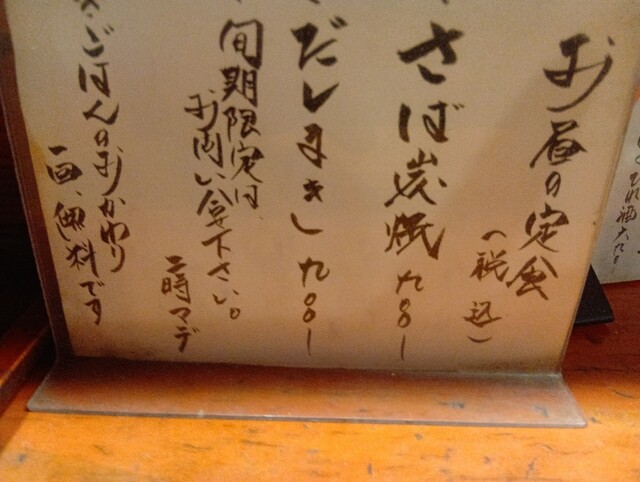 お昼の定食
（税込）
さば炭焼 九〇〇ー
だしまき 九〇〇ー
旬期限定は、
お問い合せ下さい。
二時マデ
ごはんのおかわり
一回、無料です